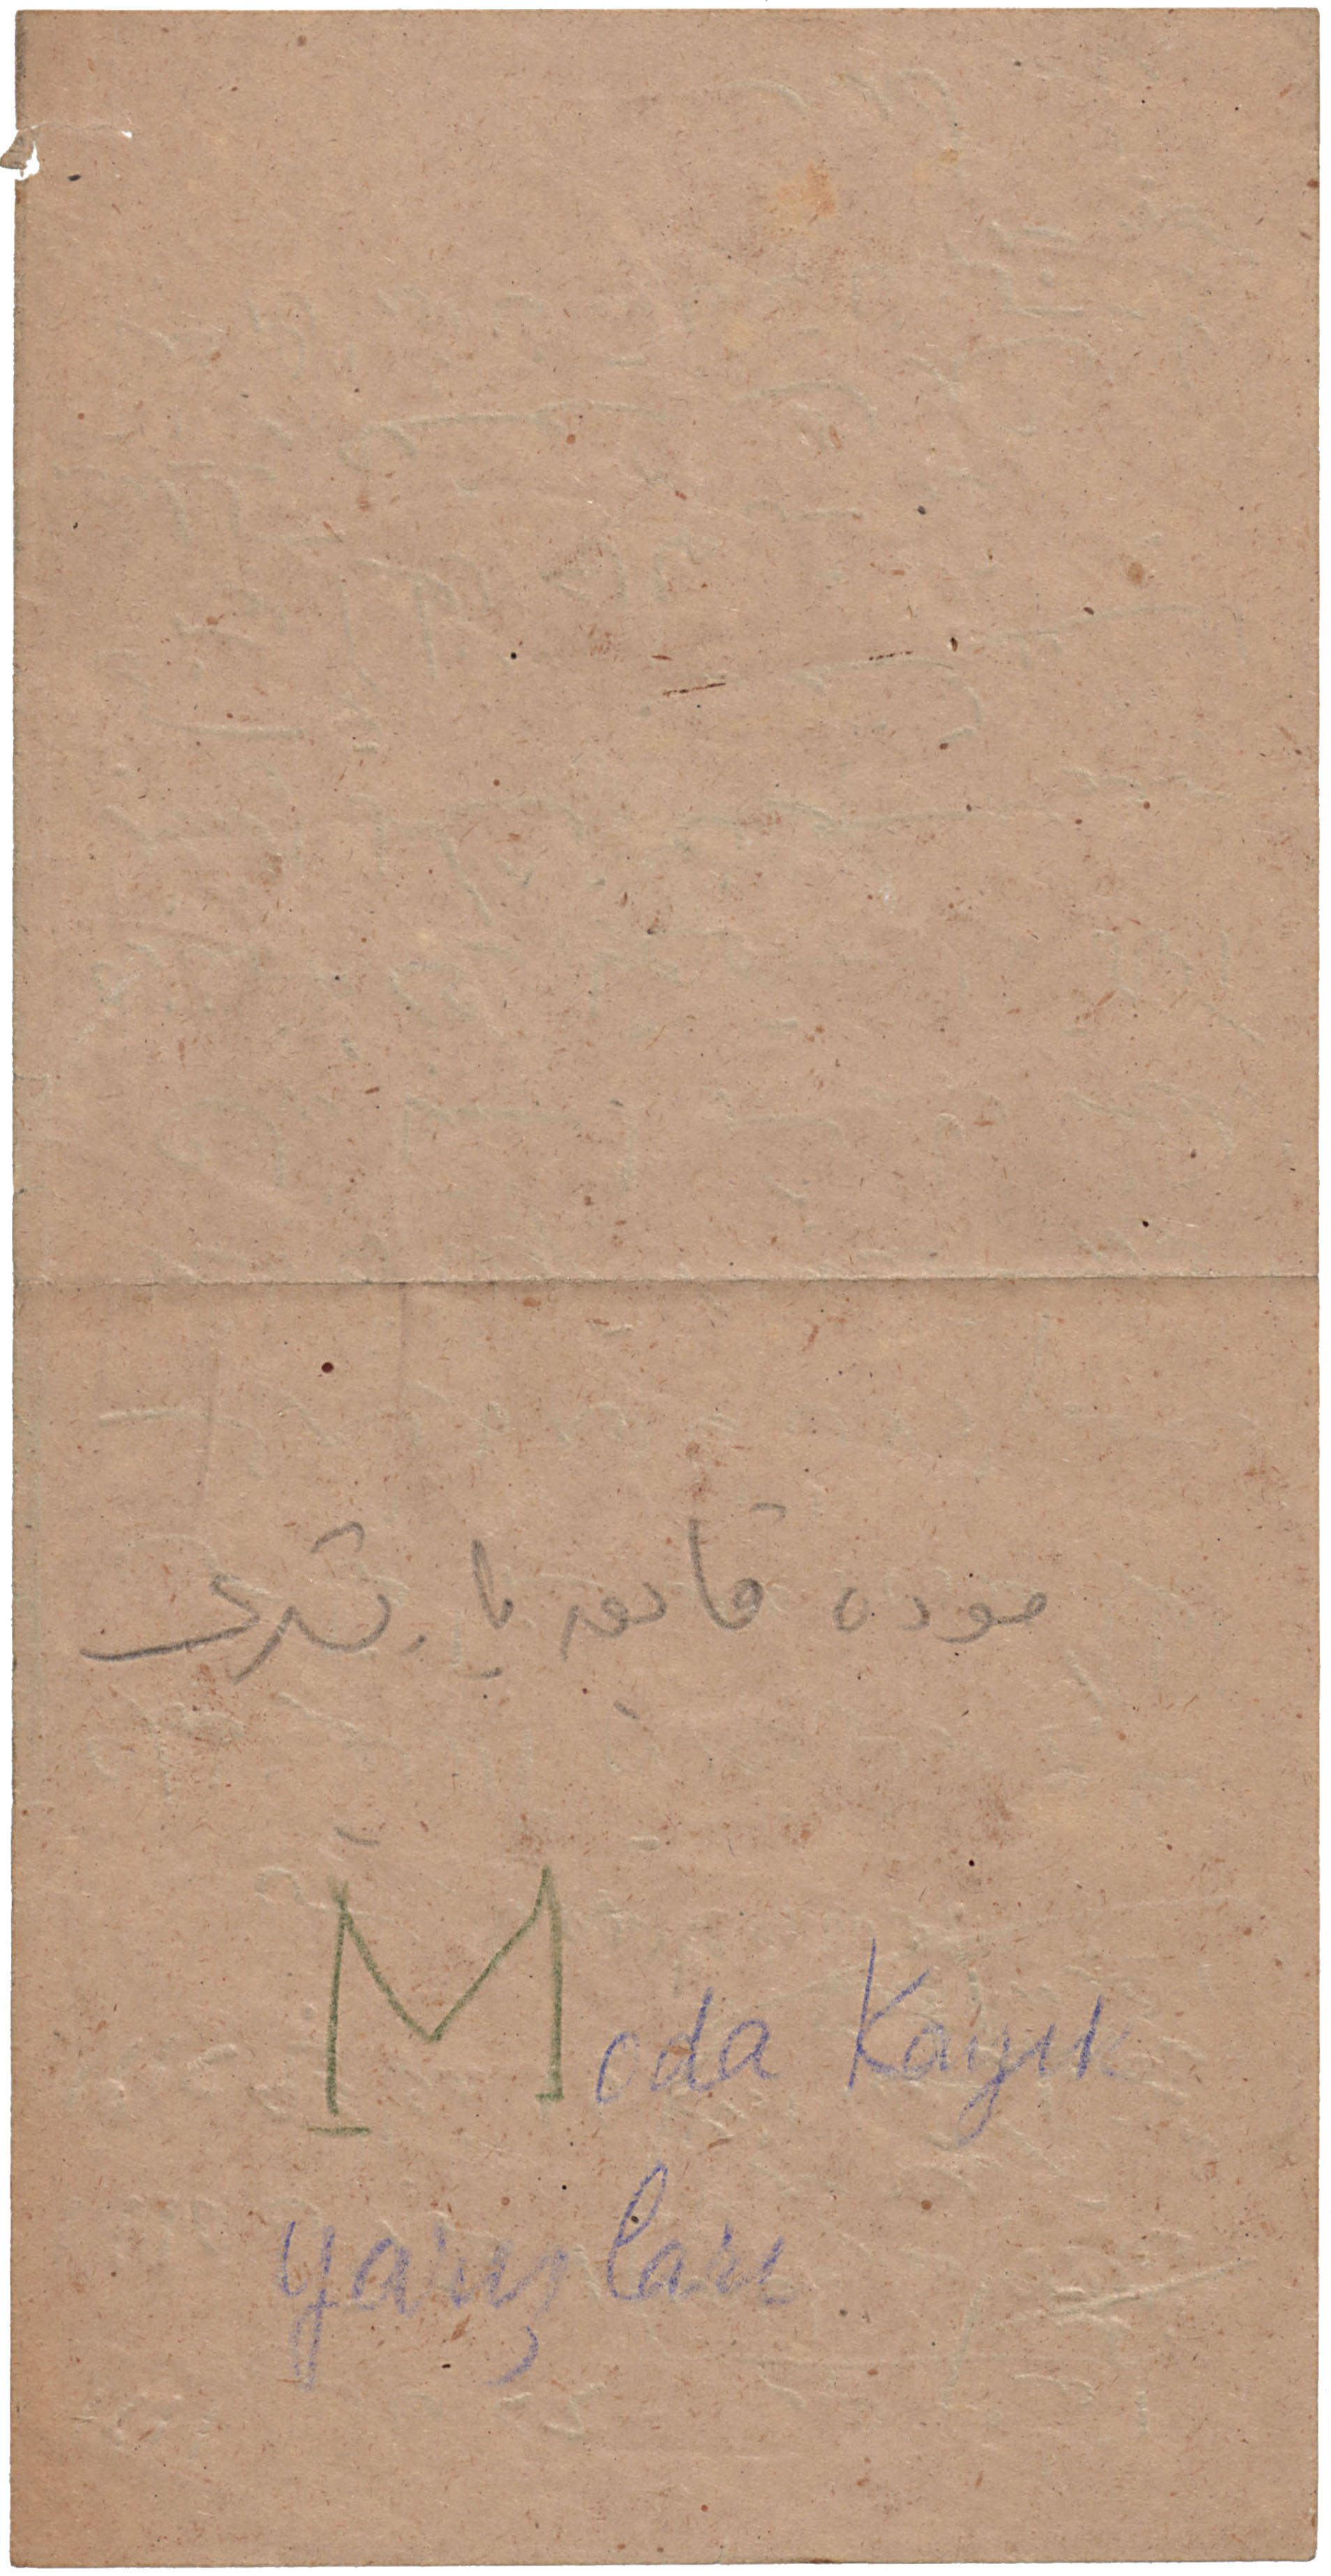 موده قایق یارشلری
Moda Kayık
yarışları